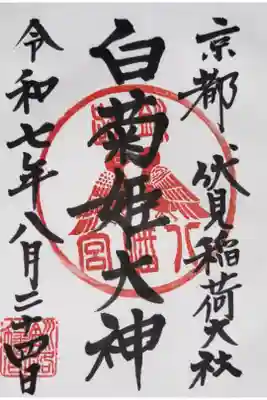 京都、伏見稲荷大社
白菊姫大神
令和七年八月二十四日